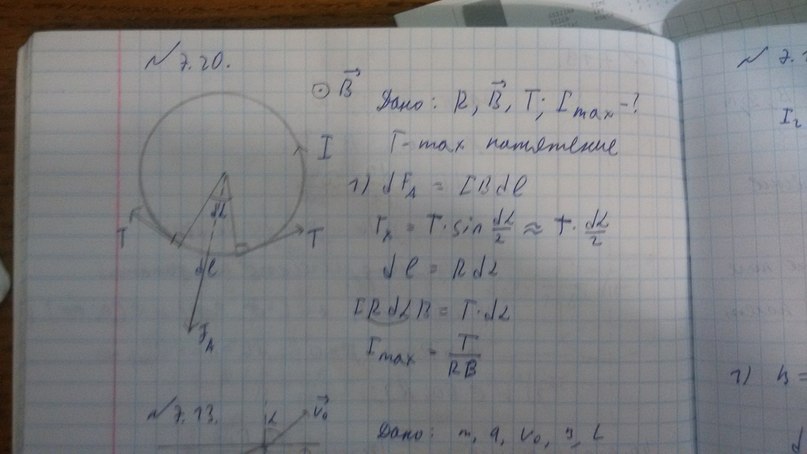 №7.20.
⊙ B⃗
Дано: R, B⃗, T; I max -?
T-max натяжение
I
1) dF_A = IBdl
T_x = T·sin dα/2 ≈ T·dα/2
T
T
dα
dl
dl = Rdα
IRdαB = T·dα
F_A
I max = T/RB
№7.13.
α
V⃗₀
Дано: m, q, V₀,
№7.
I₂
1) h =